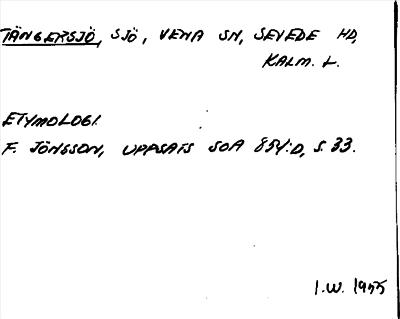 TÄNGERSJÖ, SJÖ, VENA SN, SEVEDE HD,
KALM. L.
ETYMOLOGI.
F. JÖNSSON, UPPSATS SOA 854:D, S. 33.
I.W. 1955